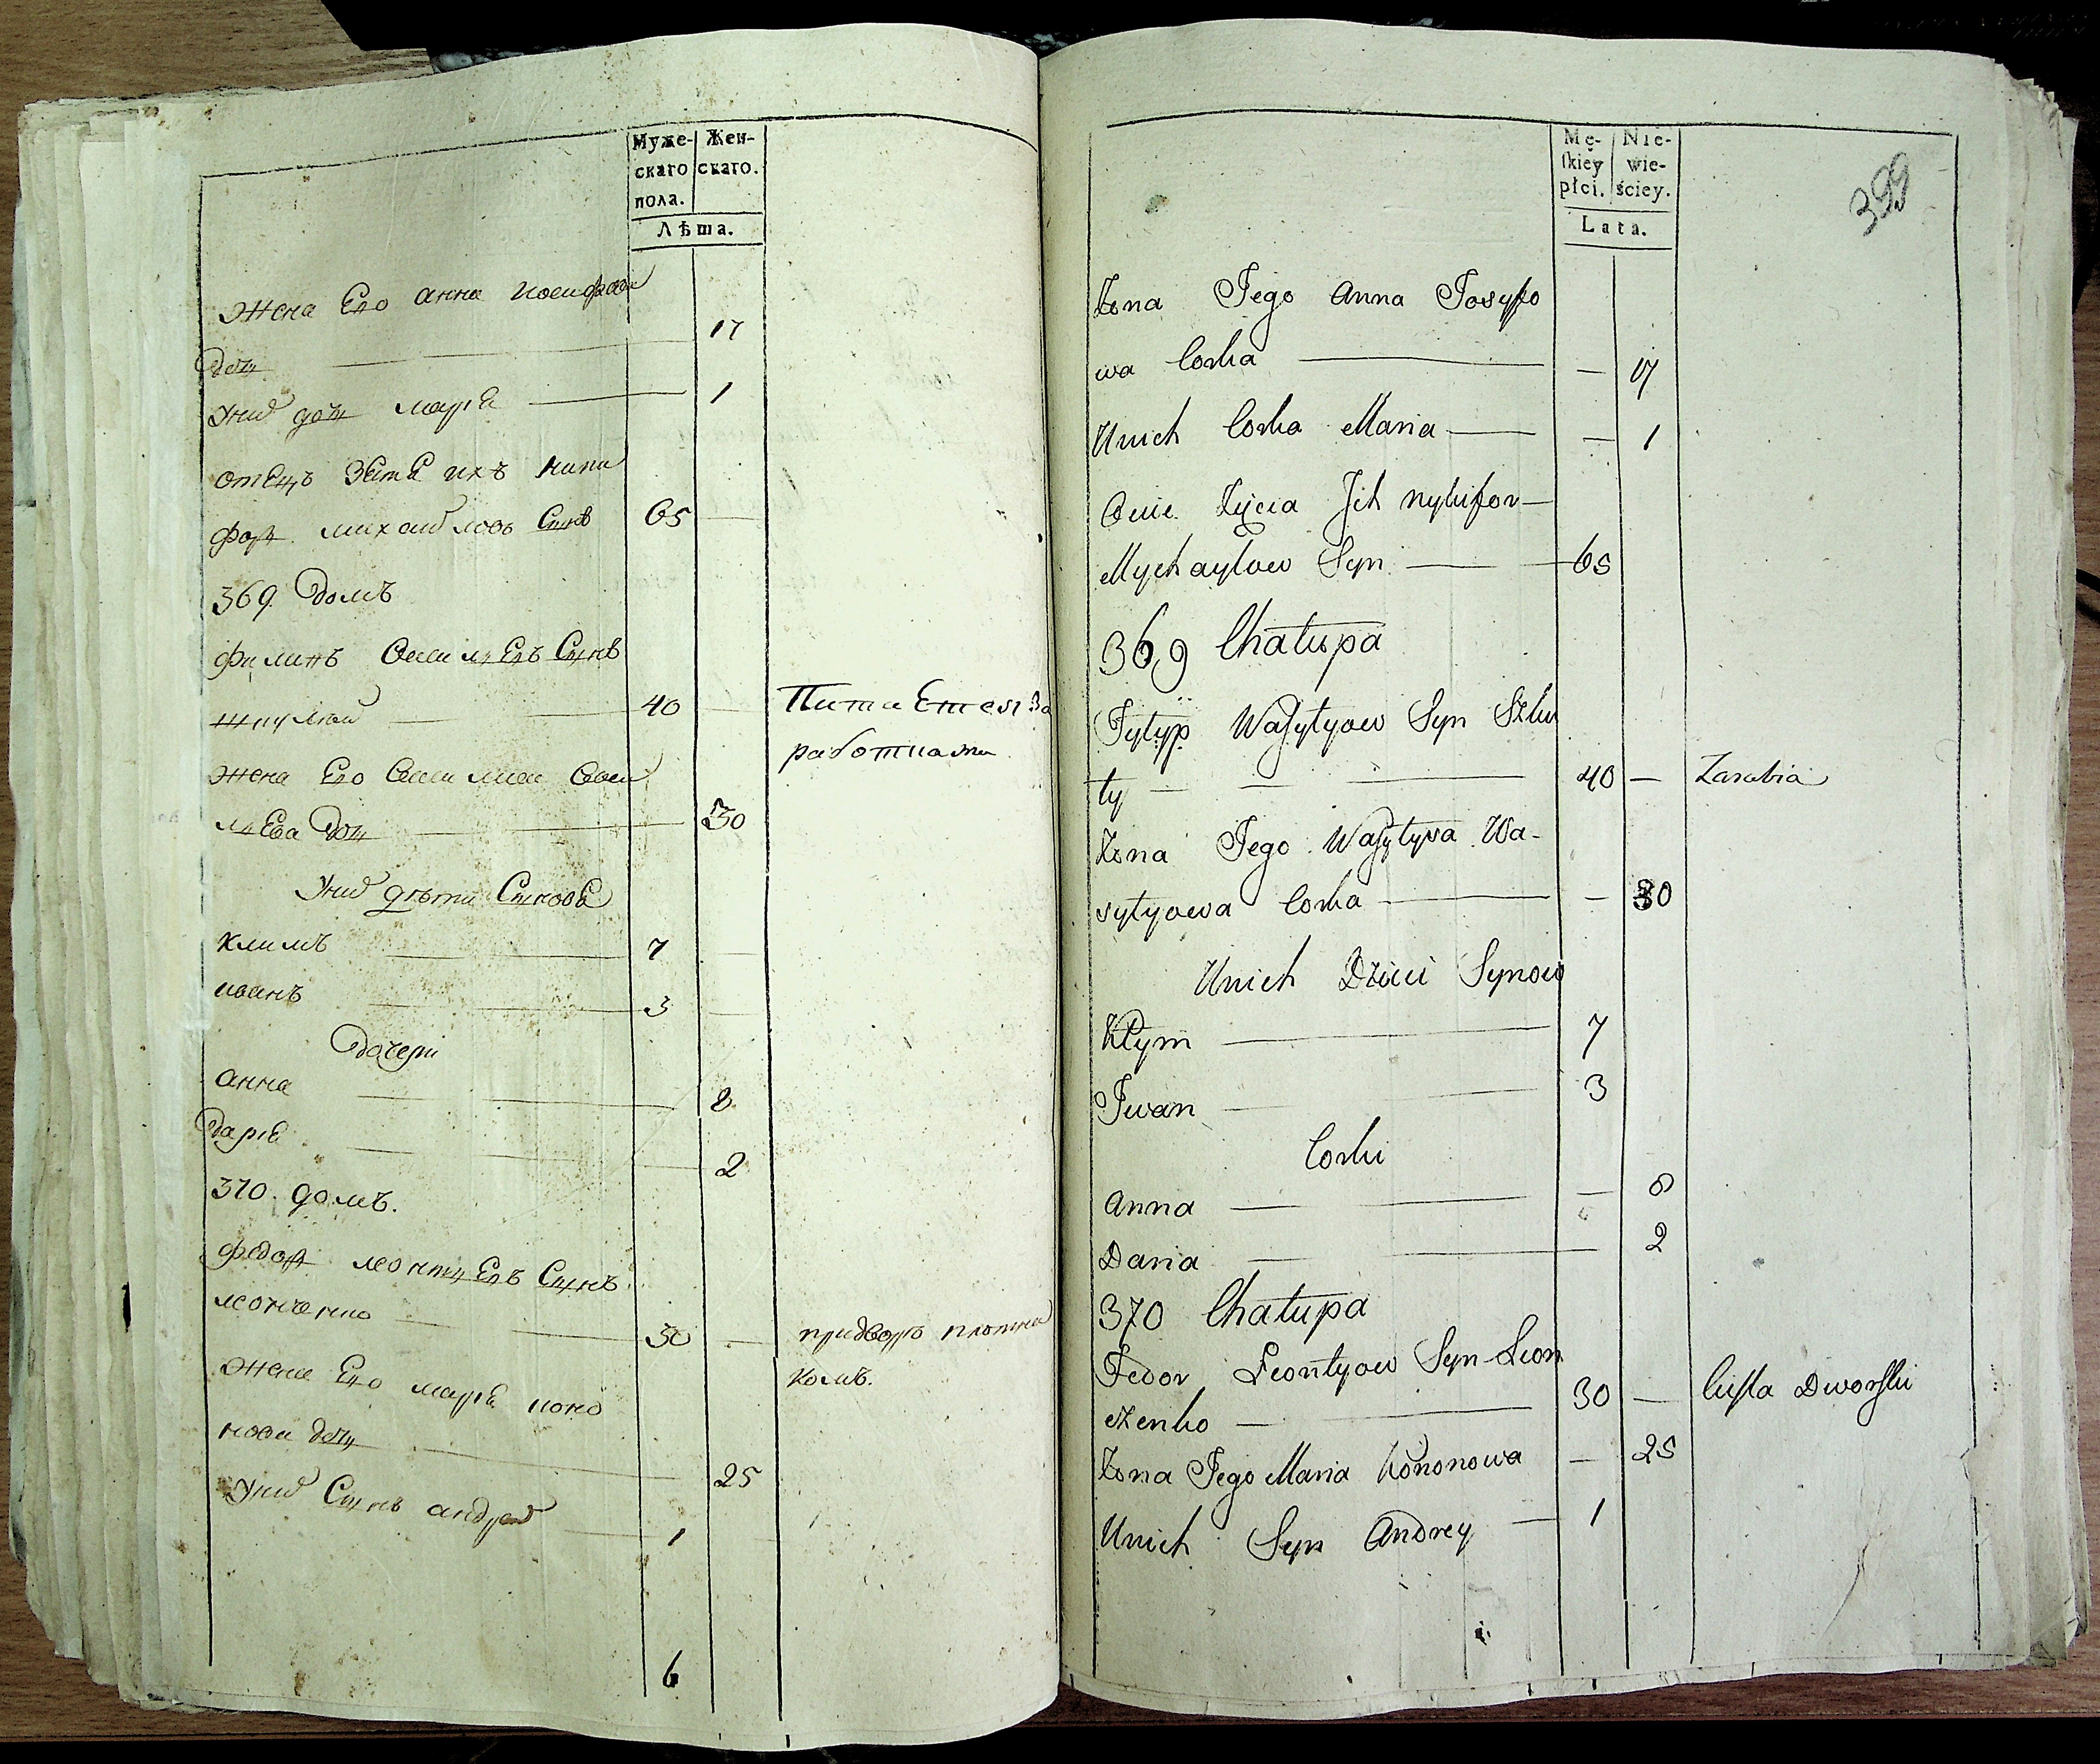 Муже-
скаго
пола.
Жен-
скаго.
Лѣта.
Жена Его анна иосифова
дочъ 17
Унихъ дочъ марiя 1
отецъ Зятя ихъ ники
форъ михайловъ Сынъ 65
369 домъ
филипъ Васильевъ Сынъ
40 Питается За
работками
жена Его Василиса Васи
льева Дочъ 30
Унихъ дѣти Сыновья
климъ 7
иванъ 3
Дочери
анна 8
Дарiя 2
370. домъ.
федоръ леонтьевъ Сынъ
леонченко 30 придворъ плотни
комъ.
жена Его марiя коно
нова дочъ 25
Унихъ Сынъ андрей 1
6
Mę-
skiey
płci.
Nie-
wie-
ściey.
Lata.
399
Żona Jego Anna Josyfo
wa Corka — 17
Unich Corka Maria — 1
Ociec Zięcia Jch Nykifor
Mychayłow Syn — 65
369 Chałupa
Fyłyp Wasylyow Syn Szku
ły — 40 — Zarabia
Żona Jego Wasylysa Wa-
sylyowa Corka — 30
Unich Dzieci Synow
Kłym 7
Jwan 3
Corki
Anna — 8
Daria 2
370 Chałupa
Fedor Leontyow Syn Leon
czenko 30 — Ciesla Dworski
Żona Jego Maria Kononowa — 25
Unich Syn Andrey — 1